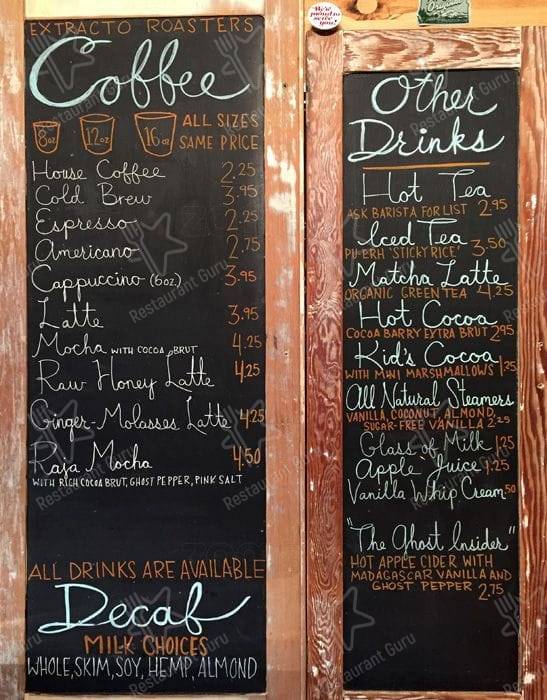 EXTRACTO ROASTERS
Coffee
8oz 12oz 16oz ALL SIZES
SAME PRICE
House Coffee 2.25
Cold Brew 3.95
Espresso 2.25
Americano 2.75
Cappuccino (6oz.) 3.95
Latte 3.95
Mocha WITH COCOA BRUT 4.25
Raw Honey Latte 4.25
Ginger-Molasses Latte 4.25
Raja Mocha 4.50
WITH RICH COCOA BRUT, GHOST PEPPER, PINK SALT
ALL DRINKS ARE AVAILABLE
Decaf
MILK CHOICES
WHOLE, SKIM, SOY, HEMP, ALMOND
We're
proud to
serve
you!
Original
Other
Drinks
Hot Tea
ASK BARISTA FOR LIST 2.95
Iced Tea 3.50
PU-ERH 'STICKY RICE'
Matcha Latte
ORGANIC GREEN TEA 4.25
Hot Cocoa
COCOA BARRY EXTRA BRUT 2.95
Kid's Cocoa
WITH MINI MARSHMALLOWS 1.25
All Natural Steamers
VANILLA, COCONUT, ALMOND,
SUGAR-FREE VANILLA 2.25
Glass of Milk 1.25
Apple Juice 1.25
Vanilla Whip Cream .50
"The Ghost Insider"
HOT APPLE CIDER WITH
MADAGASCAR VANILLA AND
GHOST PEPPER 2.75
Restaurant Guru